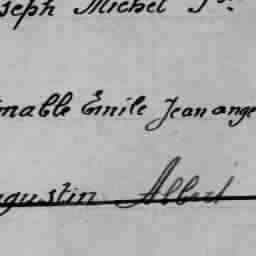 seph Michel
mable Emile Jean ange
gustin Albert